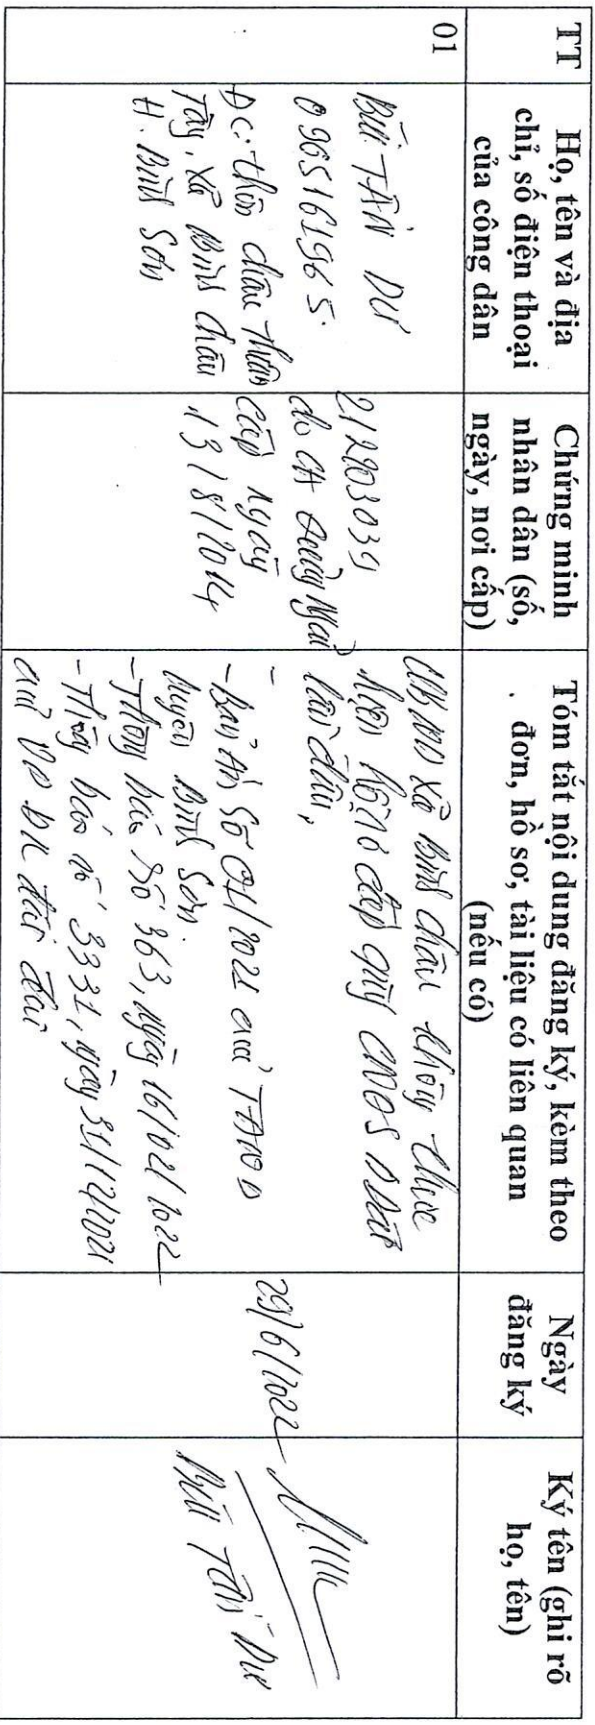 TT
Họ, tên và địa
chỉ, số điện thoại
của công dân
Chứng minh
nhân dân (số,
ngày, nơi cấp)
Tóm tắt nội dung đăng ký, kèm theo
đơn, hồ sơ, tài liệu có liên quan
(nếu có)
Ngày
đăng ký
Ký tên (ghi rõ
họ, tên)
01
Bùi TẤN DƯ
0965161965.
ĐC: thôn châu thuận
Tây, xã Bình châu
H. Bình Sơn
212903039
do CA Quảng Ngãi
cấp ngày
13/8/2014
UBND xã Bình châu không thực
hiện hồ sơ cấp giấy CNQS D Đất
lần đầu,
- Bản Án số 01/2021 của TAND
huyện Bình Sơn.
- Thông báo số 363, ngày 16/02/2022
- Thông báo số 3331, ngày 31/12/2021
của VP ĐK đất đai
29/6/2022
Bùi Tấn Dư